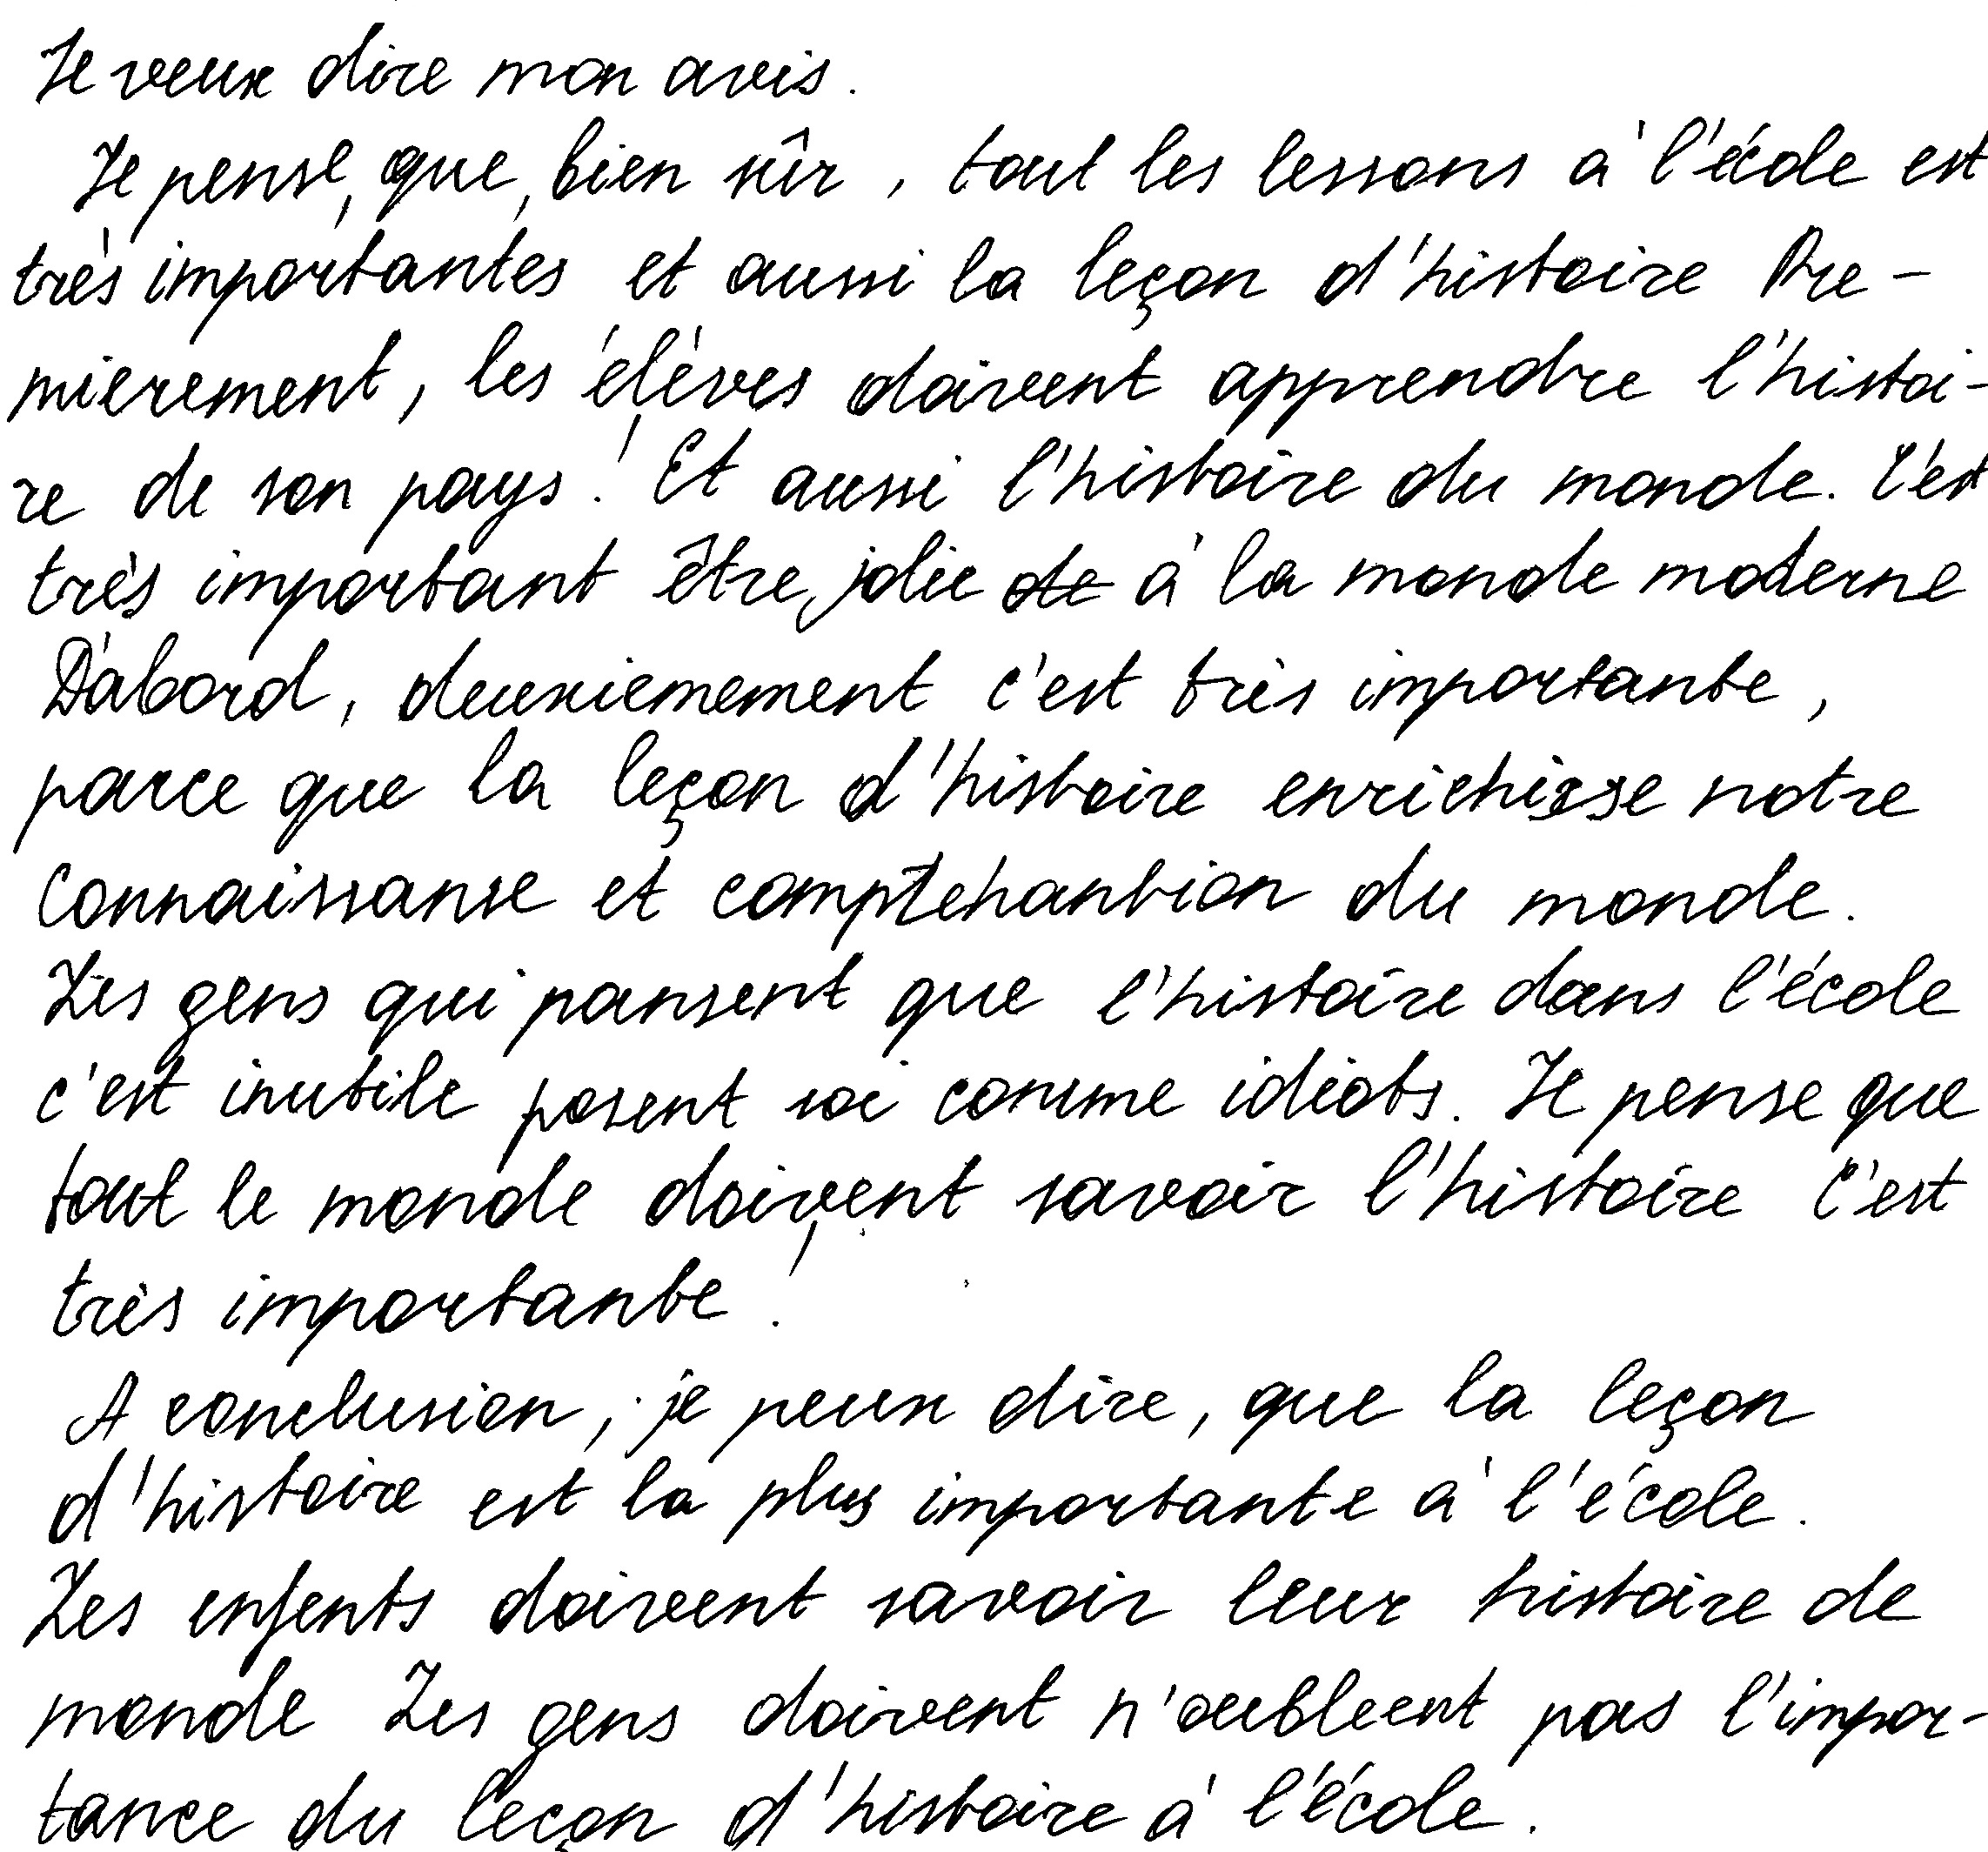 Je veux dire mon avis.
Je pense, que, bien sûr, tout les lessons à l'école est
très importantes et aussi la leçon d'histoire Pre-
mierement, les élèves doivent apprendre l'histoi-
re de son pays! Et aussi l'histoire du monde. C'est
très important être jolie de à la monde moderne
D'abord, deuxiemement c'est très importante,
parce que la leçon d'histoire enrichisse notre
connaissanse et comprehantion du monde.
Les gens qui pansent que l'histoire dans l'école
c'est inutile posent soi comme idiots. Je pense que
tout le monde doivent savoir l'histoire C'est
très importante!
A conclusion, je peux dire, que la leçon
d'histoire est la plus importante à l'école.
Les enfents doivent savoir leur histoire de
monde Les gens doivent n'oubleent pas l'impor-
tance du leçon d'histoire à l'école.